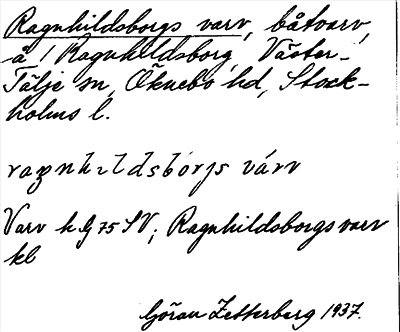 Ragnhildsborgs varv, båtvarv,
å Ragnhildsborg, Väster-
Tälje sn, Öknebo hd, Stock-
holms l.
ragnhıldsbórjs várv
Varv h G 75 SV; Ragnhildsborgs varv
kl
Göran Zetterberg 1937.